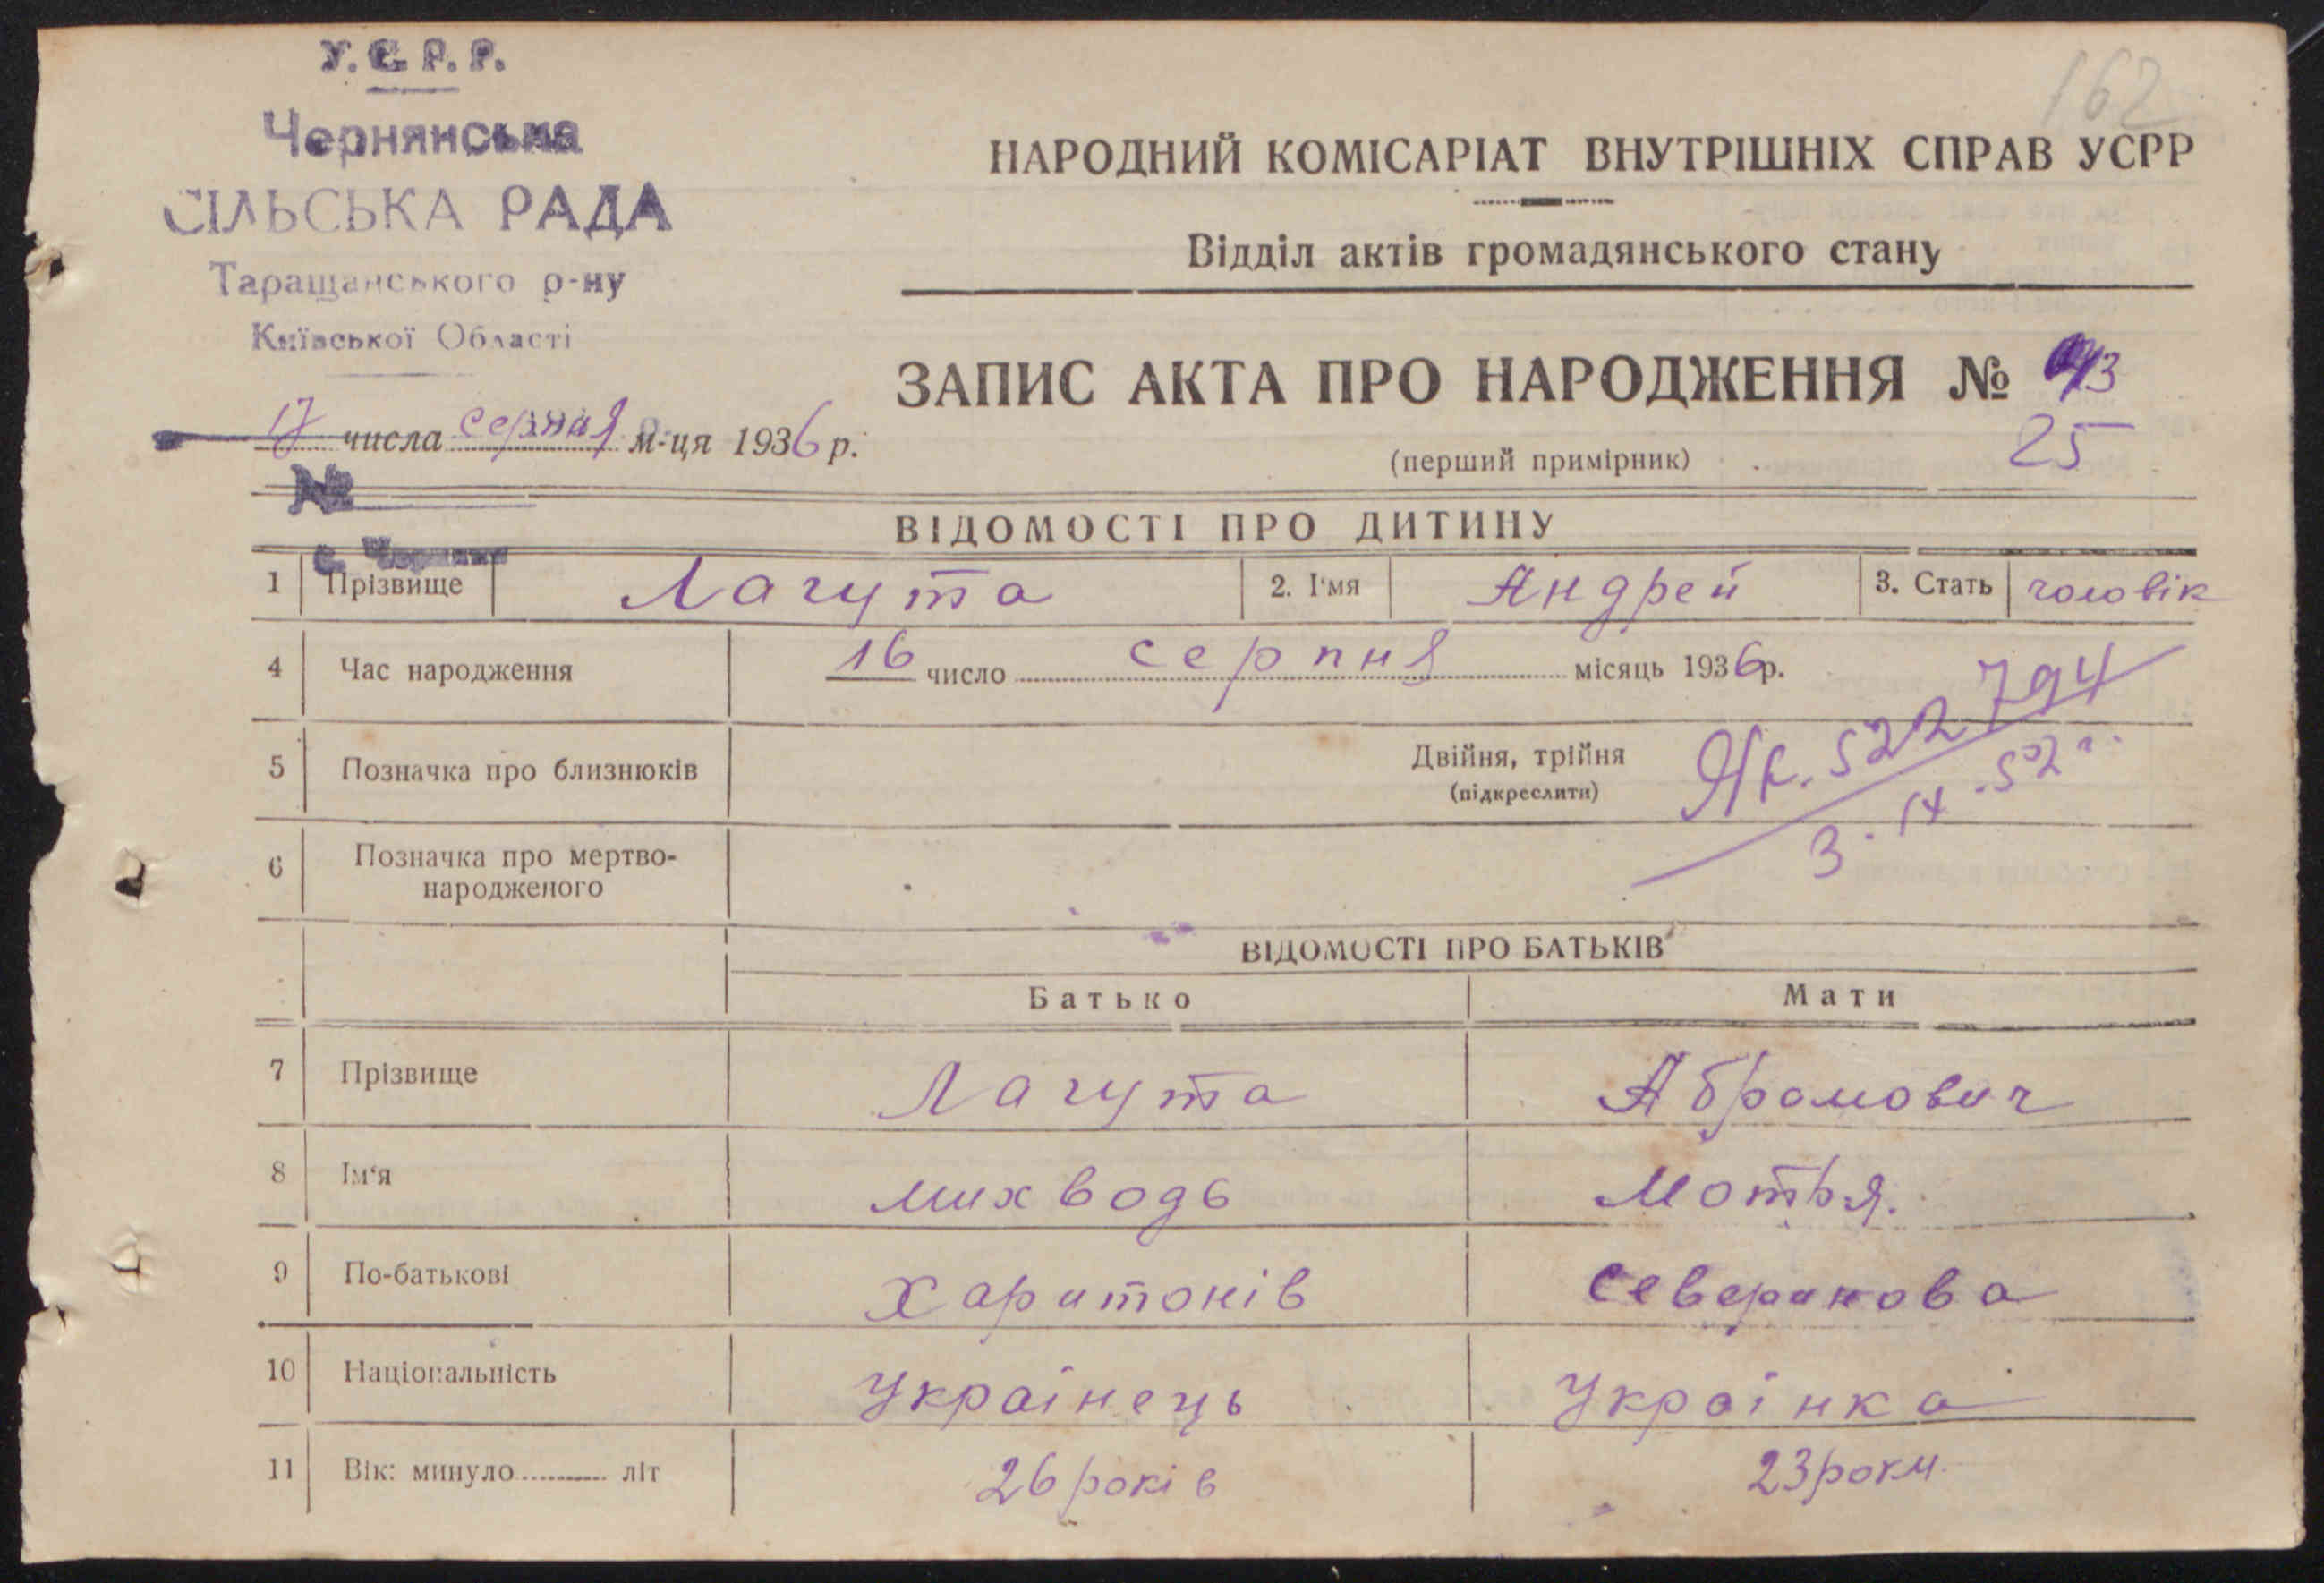 162
У.С.Р.Р.
Чернянська
СІЛЬСЬКА РАДА
Таращанського р-ну
Київської Області
17 числа серпня м-ця 1936 р.
№
с. Чернянка
НАРОДНИЙ КОМІСАРІАТ ВНУТРІШНІХ СПРАВ УСРР
Відділ актів громадянського стану
ЗАПИС АКТА ПРО НАРОДЖЕННЯ № 43
(перший примірник) 25
ВІДОМОСТІ ПРО ДИТИНУ
1 Прізвище Лагута 2. І'мя Андрей 3. Стать чоловік
4 Час народження 16 число серпня місяць 1936р.
5 Позначка про близнюків Двійня, трійня
(підкреслити)
Яр. 522794
3. IV. 52 г.
6 Позначка про мертво-
народженого
ВІДОМОСТІ ПРО БАТЬКІВ
Батько Мати
7 Прізвище Лагута Абрамович
8 Ім'я Мотря.
9 По-батькові Харитонів Северинова
10 Національність Українець Українка
11 Вік: минуло ........ літ 26 років 23 роки